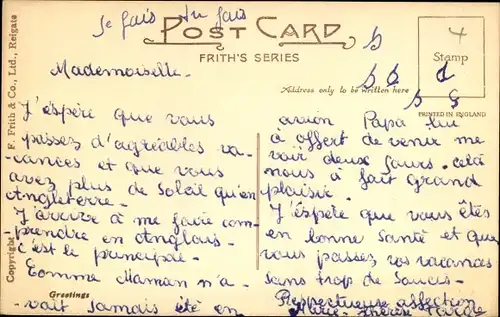 Je fais tu fais
POST CARD
FRITH'S SERIES
Stamp
Address only to be written here
PRINTED IN ENGLAND
Copyright F. Frith & Co., Ltd., Reigate
Mademoiselle.
J'éspère que vous
passez d'agréables va-
cances et que vous
avez plus de soleil qu'en
Angleterre.
J'arrive à me faire com-
prendre en Anglais.
c'est le principal.
Comme Maman n'a-
vait jamais été en
Greetings
avion Papa lui
à offert de venir me
voir deux jours. celà
nous à fait grand
plaisir.
J'éspète que vous êtes
en bonne santé et que
vous passez vos vacances
sans trop de soucis.
Respectueuse affection
Marie-Thérèse